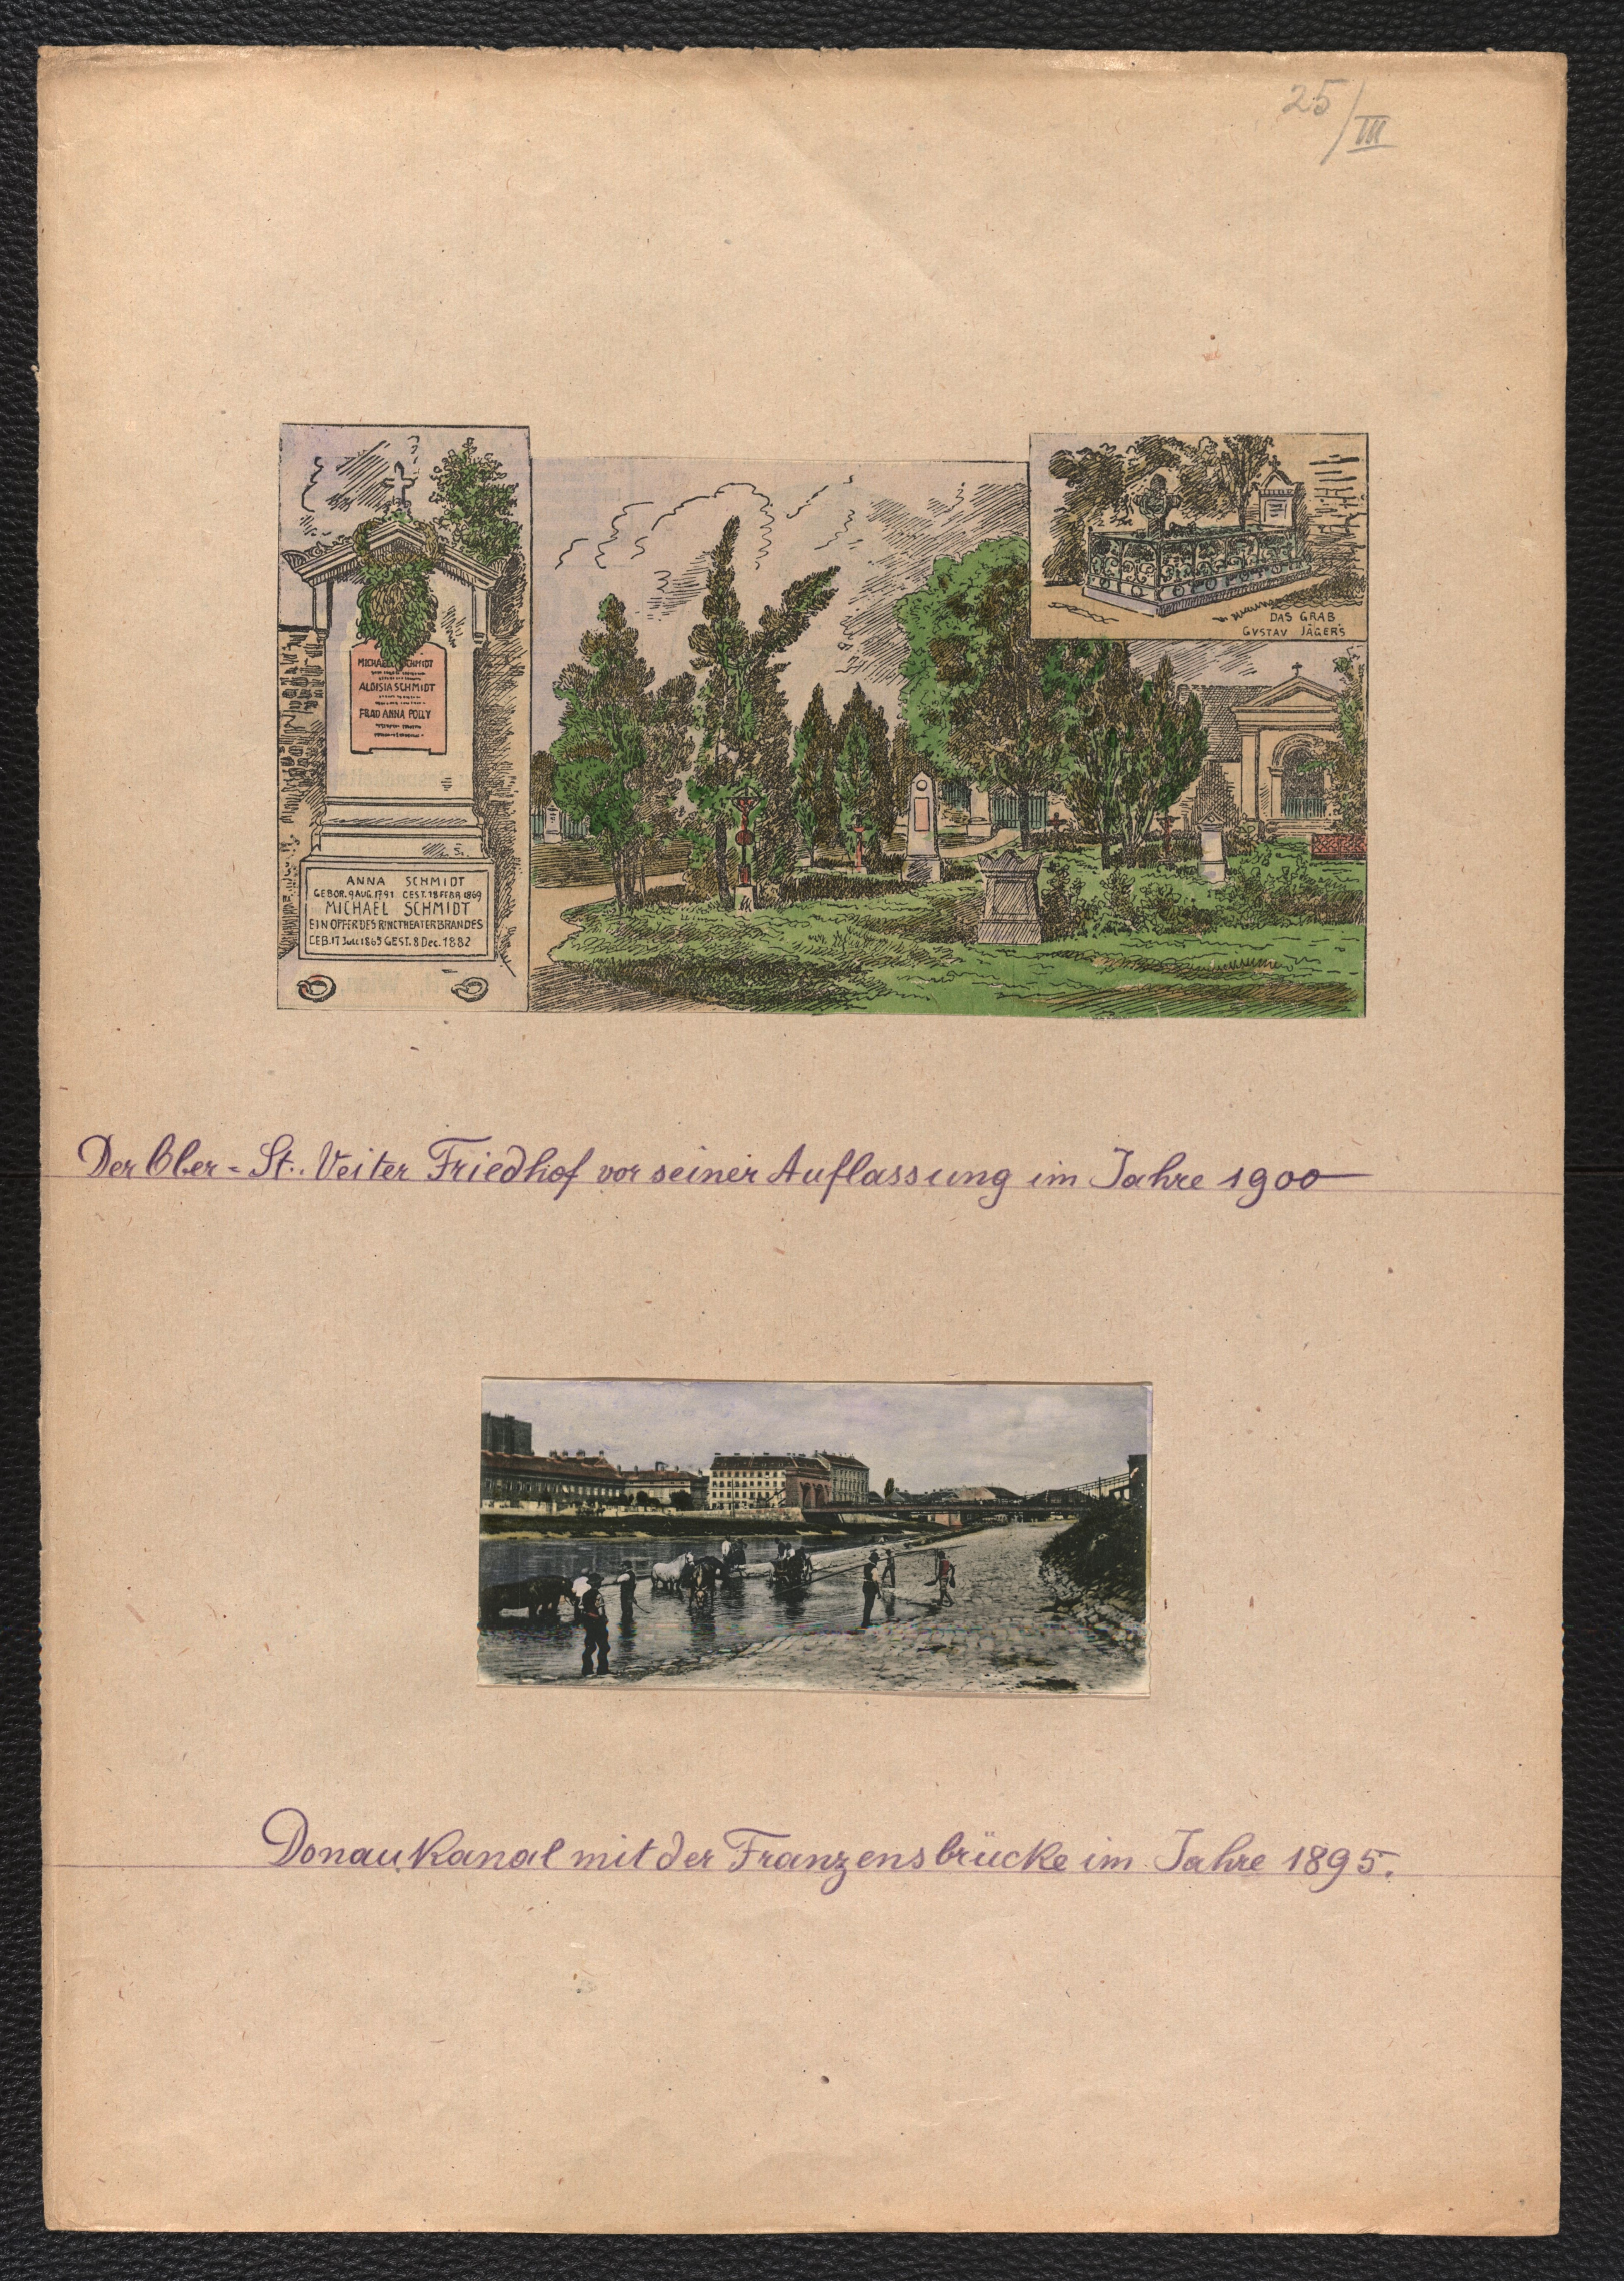 25/III
MICHAEL SCHMIDT
ALOISIA SCHMIDT
FRAU ANNA POLLY
ANNA SCHMIDT
GEBOR. 9 AUG. 1791 GEST. 18 FEBR. 1869
MICHAEL SCHMIDT
EIN OPFER DES RINGTHEATERBRANDES
GEB. 17 Juli 1865 GEST. 8 Dec. 1882
DAS GRAB
GVSTAV JÄGERS
Der Ober=St. Veiter Friedhof vor seiner Auflassung im Jahre 1900
Donaukanal mit der Franzensbrücke im Jahre 1895.